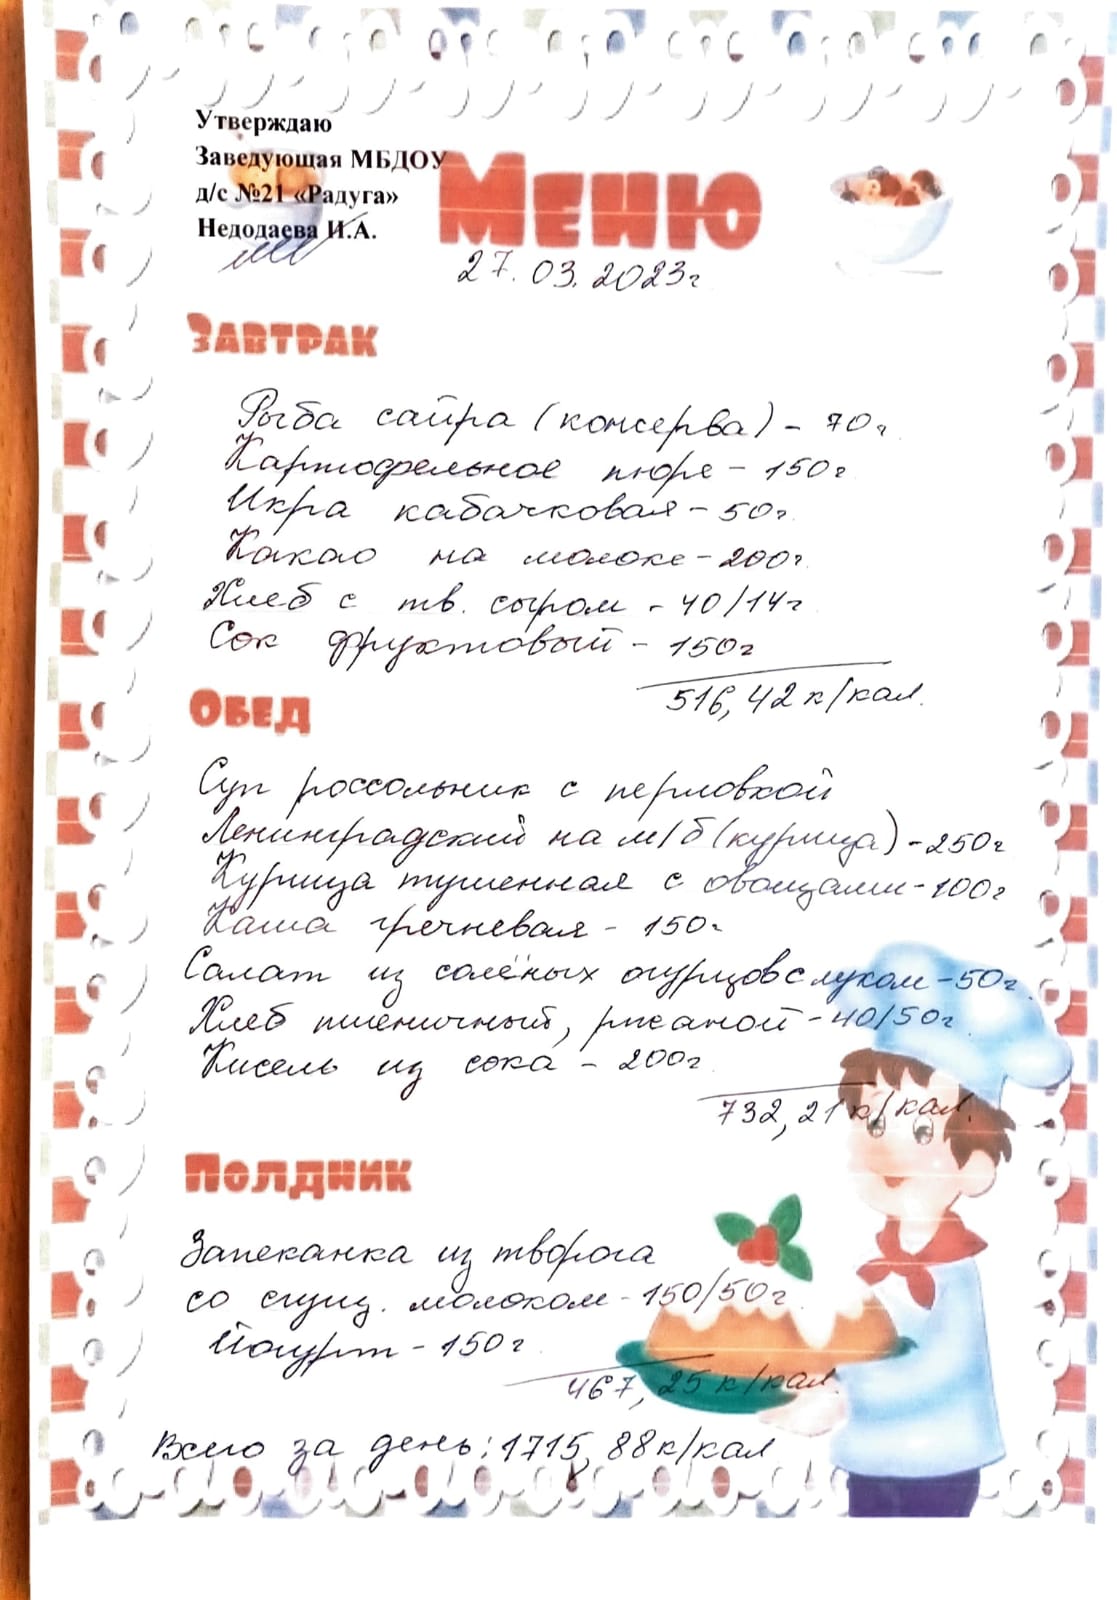 Утверждаю
Заведующая МБДОУ
д/с №21 «Радуга»
Недодаева И.А.
Меню
27.03.2023г
Завтрак
Рыба сайра (консерва) - 70г
Картофельное пюре - 150г
Икра кабачковая - 50г
Какао на молоке - 200г
Хлеб с тв. сыром - 40/14г
Сок фруктовый - 150г
516,42 к/кал.
Обед
Суп россольник с перловкой
Ленинградский на м/б (курица) - 250г
Курица тушенная с овощами - 100г
Каша гречневая - 150г
Салат из солёных огурцов с луком - 50г
Хлеб пшеничный, ржаной - 40/50г
Кисель из сока - 200г
732,21 к/кал.
Полдник
Запеканка из творога
со сгущ. молоком - 150/50г
Йогурт - 150г
467,25 к/кал.
Всего за день: 1715,88 к/кал